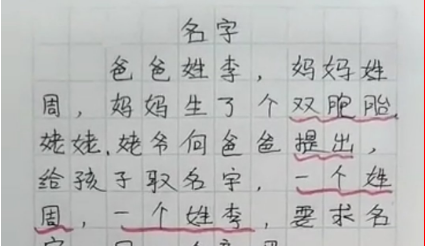 名字
爸爸姓李，妈妈姓
周，妈妈生了个双胞胎，
姥姥、姥爷向爸爸提出，
给孩子取名字，一个姓
周，一个姓李，要求名